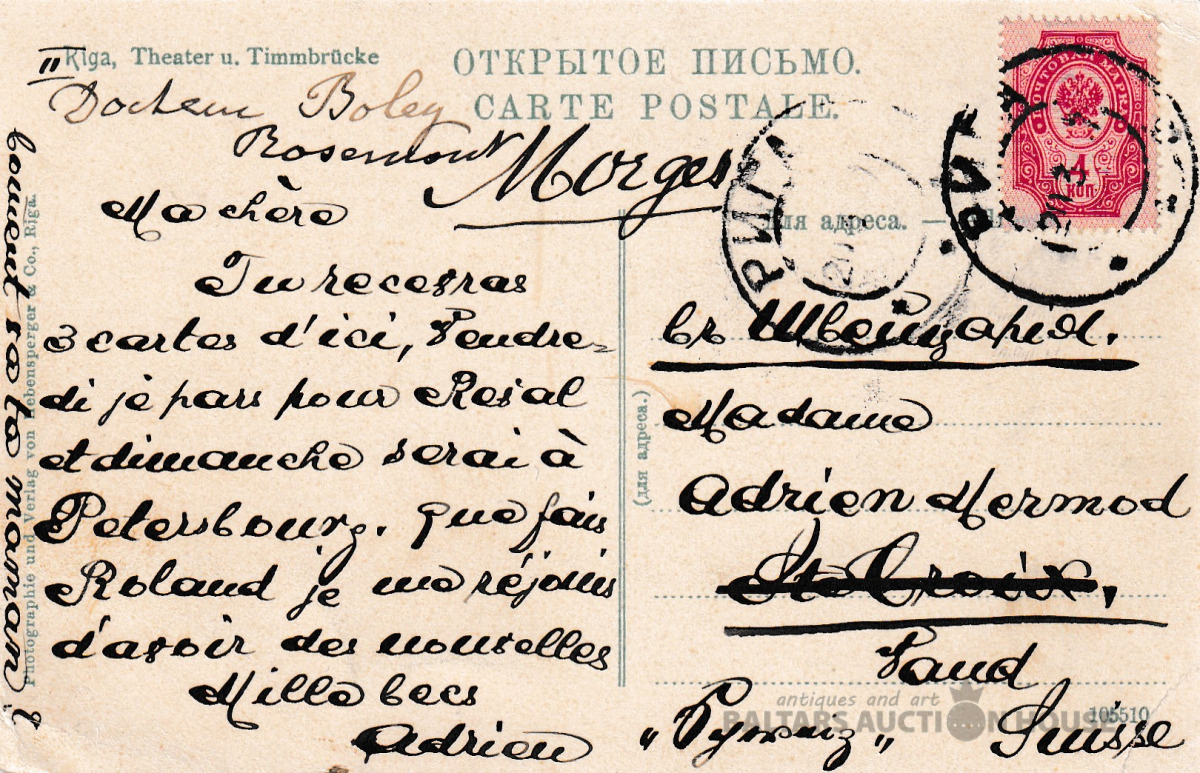 Riga, Theater u. Timmbrücke
ОТКРЫТОЕ ПИСЬМО.
CARTE POSTALE.
Boley
Rosemont
Morges
Ma chère
Tu recevras
3 cartes d'ici, Vendre-
di je pars pour Reval
et dimanche serai à
Petersbourg. que fais
Roland je me réjouis
d'avoir des nouvelles
Mille becs
Adrien
souvent sa to maman
Photographie und Verlag von Hebensperger & Co., Riga.
Для адреса. —
(для адреса.)
ПОЧТОВАЯ МАРКА
4
КОП
РИГА
RIGA
въ Швейцарія.
Madame
Adrien Mermod
Ste Croix,
Vaud
Suisse
105510
antiques and art
BALTARS AUCTION HOUSE